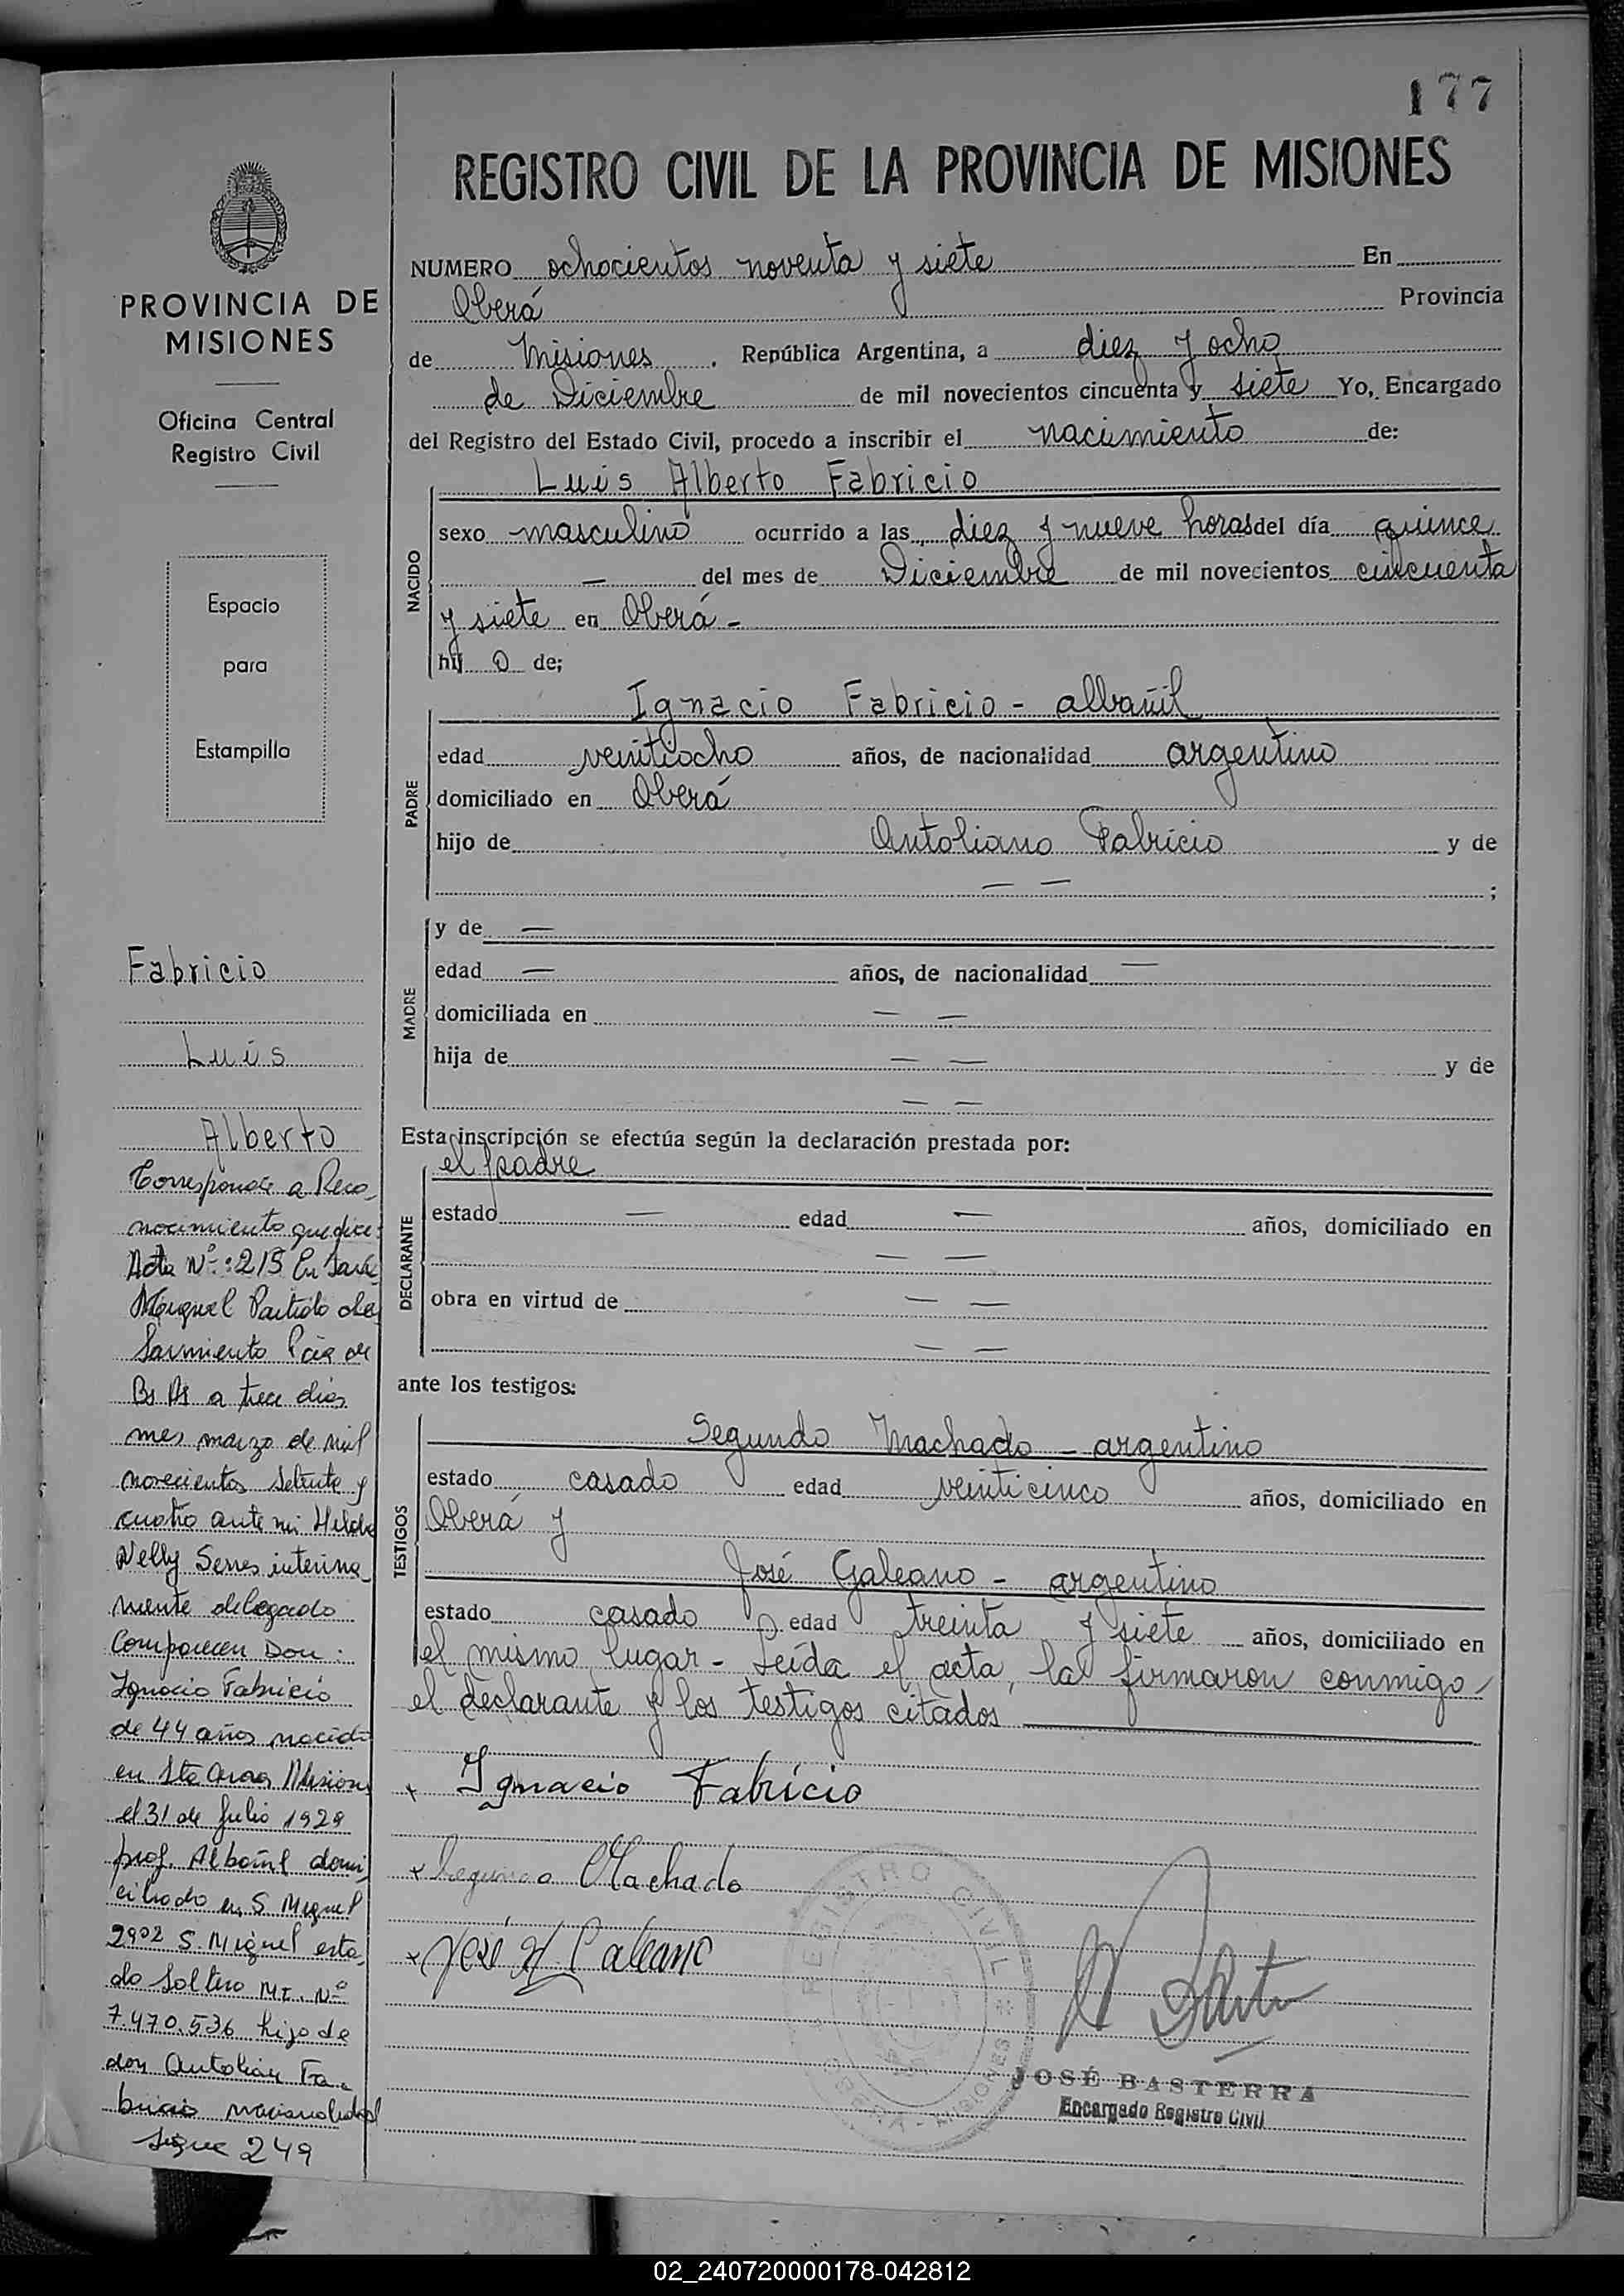 177
REGISTRO CIVIL DE LA PROVINCIA DE MISIONES
NUMERO ochocientos noventa y siete En
Oberá Provincia
de Misiones. República Argentina, a diez y ocho
de Diciembre de mil novecientos cincuenta y siete Yo, Encargado
del Registro del Estado Civil, procedo a inscribir el nacimiento de:
Luis Alberto Fabricio
NACIDO
sexo masculino ocurrido a las diez y nueve horas del día quince
— del mes de Diciembre de mil novecientos cincuenta
y siete en Oberá -
hij o de;
Ignacio Fabricio - albañil
PADRE
edad veintiocho años, de nacionalidad argentino
domiciliado en Oberá
hijo de Antoliano Fabricio y de
— — ;
MADRE
y de —
edad — años, de nacionalidad —
domiciliada en — —
hija de — — y de
— —
Esta inscripción se efectúa según la declaración prestada por:
el padre
DECLARANTE
estado — edad — años, domiciliado en
— —
obra en virtud de — —
— —
ante los testigos:
TESTIGOS
Segundo Machado - argentino
estado casado edad veinticinco años, domiciliado en
Oberá y
José Galeano - argentino
estado casado edad treinta y siete años, domiciliado en
el mismo lugar - Leída el acta, la firmaron conmigo
el declarante y los testigos citados
x Ignacio Fabricio
x Segundo Machado
x José Galeano
REGISTRO CIVIL
OBERA - MISIONES
JOSÉ BASTERRA
Encargado Registro Civil
PROVINCIA DE
MISIONES
Oficina Central
Registro Civil
Espacio
para
Estampilla
Fabricio
Luis
Alberto
Corresponde a Reco
nocimiento que dice:
Acta Nº: 215 En San
Miguel Partido de
Sarmiento Pcia de
Bs As a trece dias
mes marzo de mil
novecientos setenta y
cuatro ante mi Hilda
Nelly Serres interina
mente delegado
Comparecen Don:
Ignacio Fabricio
de 44 años nacido
en Sta Ana Misiones
el 31 de Julio 1929
prof. Albañil domi
ciliado en S. Miguel
2902 S. Miguel esta
do Soltero M.I. Nº
7.470.536 hijo de
don Antolian Fa
bricio nacionalidad
sigue 249
02_240720000178-042812